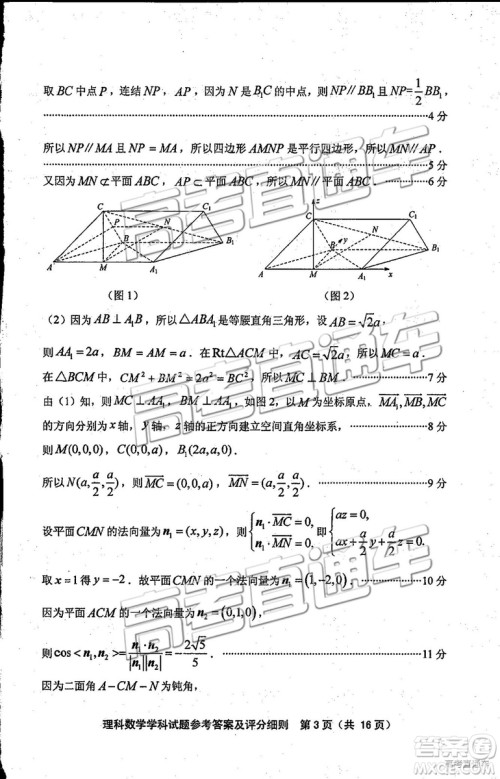 取 BC 中点 P，连结 NP，AP，因为 N 是 B₁C 的中点，则 NP∥BB₁ 且 NP=1/2 BB₁，
4 分
所以 NP∥MA 且 NP=MA，所以四边形 AMNP 是平行四边形，所以 MN∥AP．
5 分
又因为 MN⊄平面 ABC，AP⊂平面 ABC，所以 MN∥平面 ABC．
6 分
C C₁ P N B B₁ A M A₁
z C C₁ N y B B₁ A M A₁ x
(图 1) (图 2)
(2) 因为 AB⊥A₁B，所以△ABA₁ 是等腰直角三角形，设 AB=√2a，
则 AA₁=2a，BM=AM=a．在 Rt△ACM 中，AC=√2a，所以 MC=a．
在△BCM 中，CM²+BM²=2a²=BC²，所以 MC⊥BM． 7 分
由 (1) 知，则 MC⊥AA₁，BM⊥AA₁，如图 2，以 M 为坐标原点，MA₁，MB，MC
的方向分别为 x 轴，y 轴，z 轴的正方向建立空间直角坐标系， 8 分
则 M(0,0,0)，C(0,0,a)，B₁(2a,a,0)．
所以 N(a,a/2,a/2)，MC=(0,0,a)，MN=(a,a/2,a/2)． 9 分
设平面 CMN 的法向量为 n₁=(x,y,z)，则{n₁·MC=0, n₁·MN=0, 即{az=0, ax+a/2 y+a/2 z=0.
取 x=1 得 y=−2．故平面 CMN 的一个法向量为 n₁=(1,−2,0)． 10 分
因为平面 ACM 的一个法向量为 n₂=(0,1,0)，
则 cos<n₁,n₂>=n₁·n₂/|n₁||n₂|=−2√5/5． 11 分
因为二面角 A−MC−N 为钝角，
理科数学学科试题参考答案及评分细则 第 3 页（共 16 页）
高考直通车